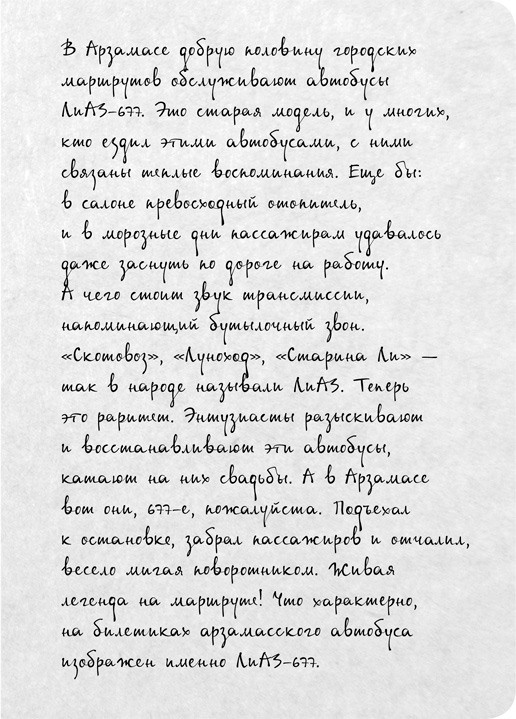 В Арзамасе добрую половину городских
маршрутов обслуживают автобусы
ЛиАЗ-677. Это старая модель, и у многих,
кто ездил этими автобусами, с ними
связаны теплые воспоминания. Еще бы:
в салоне превосходный отопитель,
и в морозные дни пассажирам удавалось
даже заснуть по дороге на работу.
А чего стоит звук трансмиссии,
напоминающий бутылочный звон.
«Скотовоз», «Луноход», «Старина Ли» —
так в народе называли ЛиАЗ. Теперь
это раритет. Энтузиасты разыскивают
и восстанавливают эти автобусы,
катают на них свадьбы. А в Арзамасе
вот они, 677-е, пожалуйста. Подъехал
к остановке, забрал пассажиров и отчалил,
весело мигая поворотником. Живая
легенда на маршруте! Что характерно,
на билетиках арзамасского автобуса
изображен именно ЛиАЗ-677.